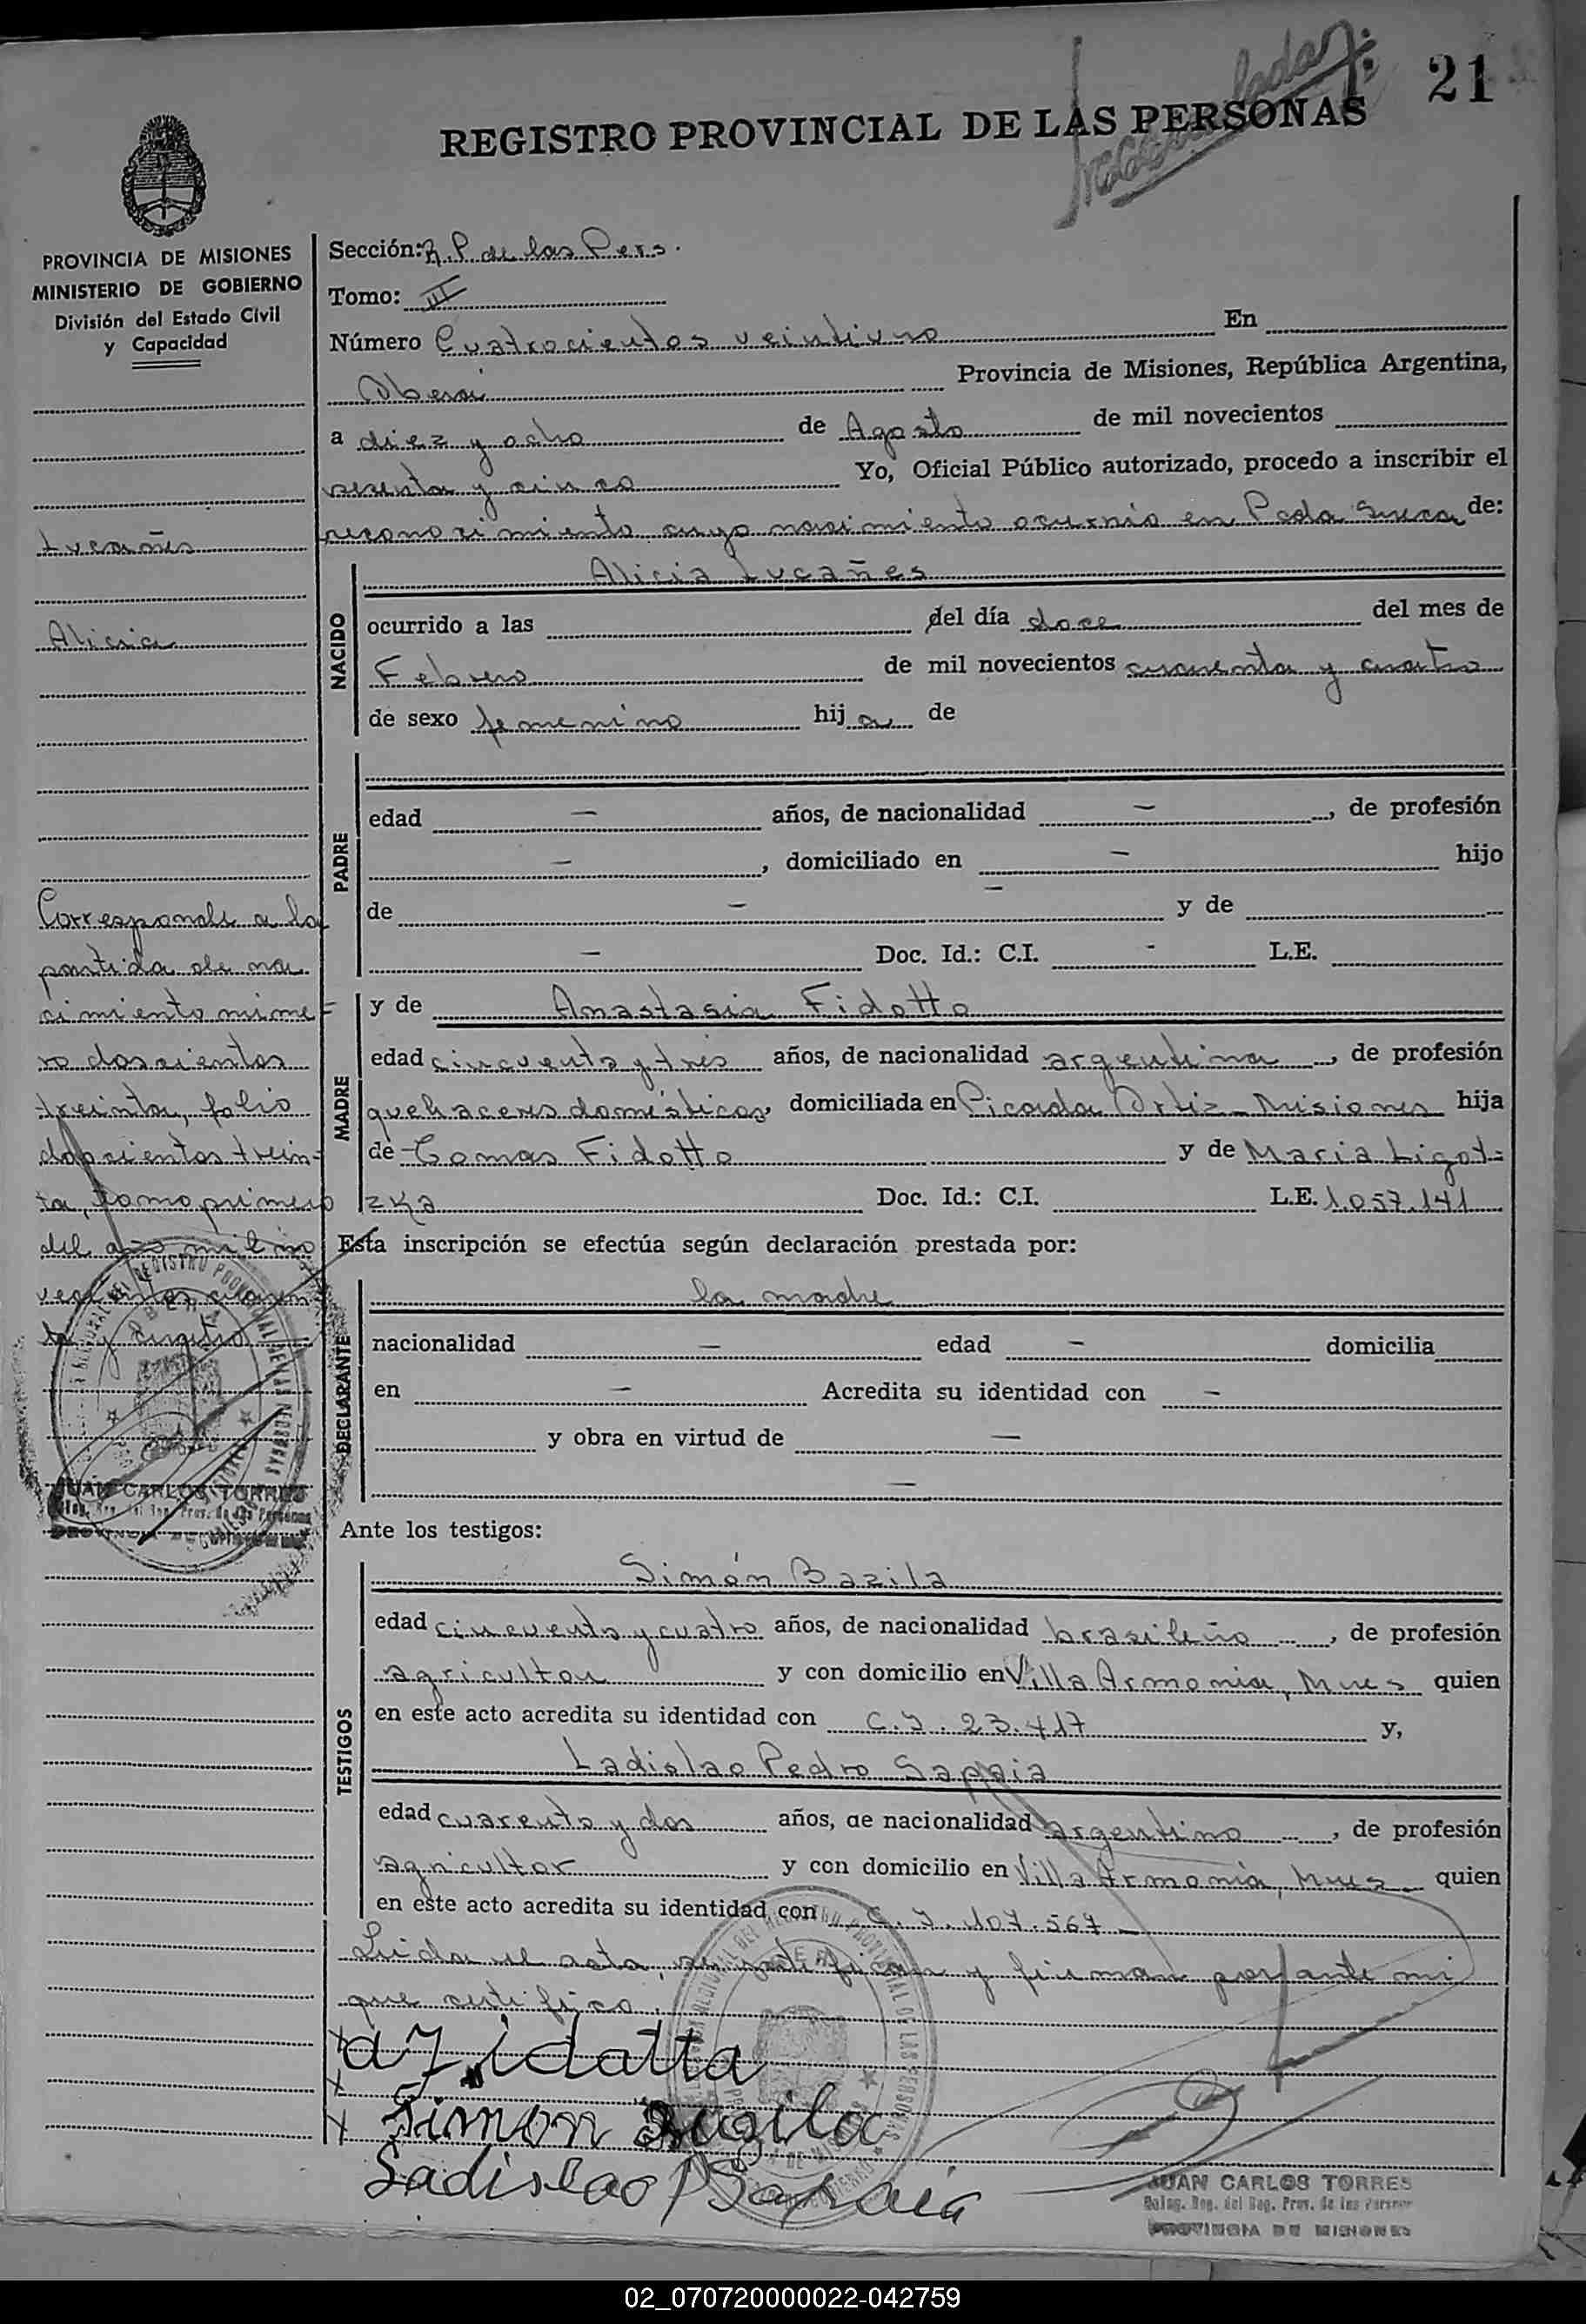 21
REGISTRO PROVINCIAL DE LAS PERSONAS
PROVINCIA DE MISIONES
MINISTERIO DE GOBIERNO
División del Estado Civil
y Capacidad
Lucañes
Alicia
Corresponde a la
partida de na
cimiento núme=
ro doscientos
treinta, folio
doscientos trein=
ta, tomo primero
del año mil no
vecientos cuaren
ta y cuatro
JUAN CARLOS TORRES
Sección: R.P. de las Pers.
Tomo: III
Número Cuatrocientos veintiuno En
Oberá Provincia de Misiones, República Argentina,
a diez y ocho de Agosto de mil novecientos
sesenta y cinco Yo, Oficial Público autorizado, procedo a inscribir el
reconocimiento cuyo nacimiento ocurrió en Pcda Sueca de:
NACIDO
Alicia Lucañes
ocurrido a las del día doce del mes de
Febrero de mil novecientos cuarenta y cuatro
de sexo femenino hija de
PADRE
edad — años, de nacionalidad —, de profesión
—, domiciliado en — hijo
de — y de —
— Doc. Id.: C.I. - L.E.
MADRE
y de Anastasia Fidotto
edad cincuenta y tres años, de nacionalidad argentina, de profesión
quehaceres domésticos, domiciliada en Picada Ortiz - Misiones hija
de Tomas Fidotto y de Maria Ligot=
zka Doc. Id.: C.I. L.E. 1.057.141
Esta inscripción se efectúa según declaración prestada por:
DECLARANTE
la madre
nacionalidad — edad — domicilia
en — Acredita su identidad con —
y obra en virtud de —
—
Ante los testigos:
TESTIGOS
Simón Bazila
edad cincuenta y cuatro años, de nacionalidad brasileño, de profesión
agricultor y con domicilio en Villa Armonia, Mnes quien
en este acto acredita su identidad con C.I. 23.417 y,
Ladislao Pedro Sapaia
edad cuarenta y dos años, de nacionalidad argentino, de profesión
agricultor y con domicilio en Villa Armonia, Mnes quien
en este acto acredita su identidad con C.I. 107.567 —
Leida el acta, se ratifican y firman por ante mi
que certifico.
a Fidotta
Simon Bazila
Ladislao P Sapaia
JUAN CARLOS TORRES
PROVINCIA DE MISIONES
02_070720000022-042759